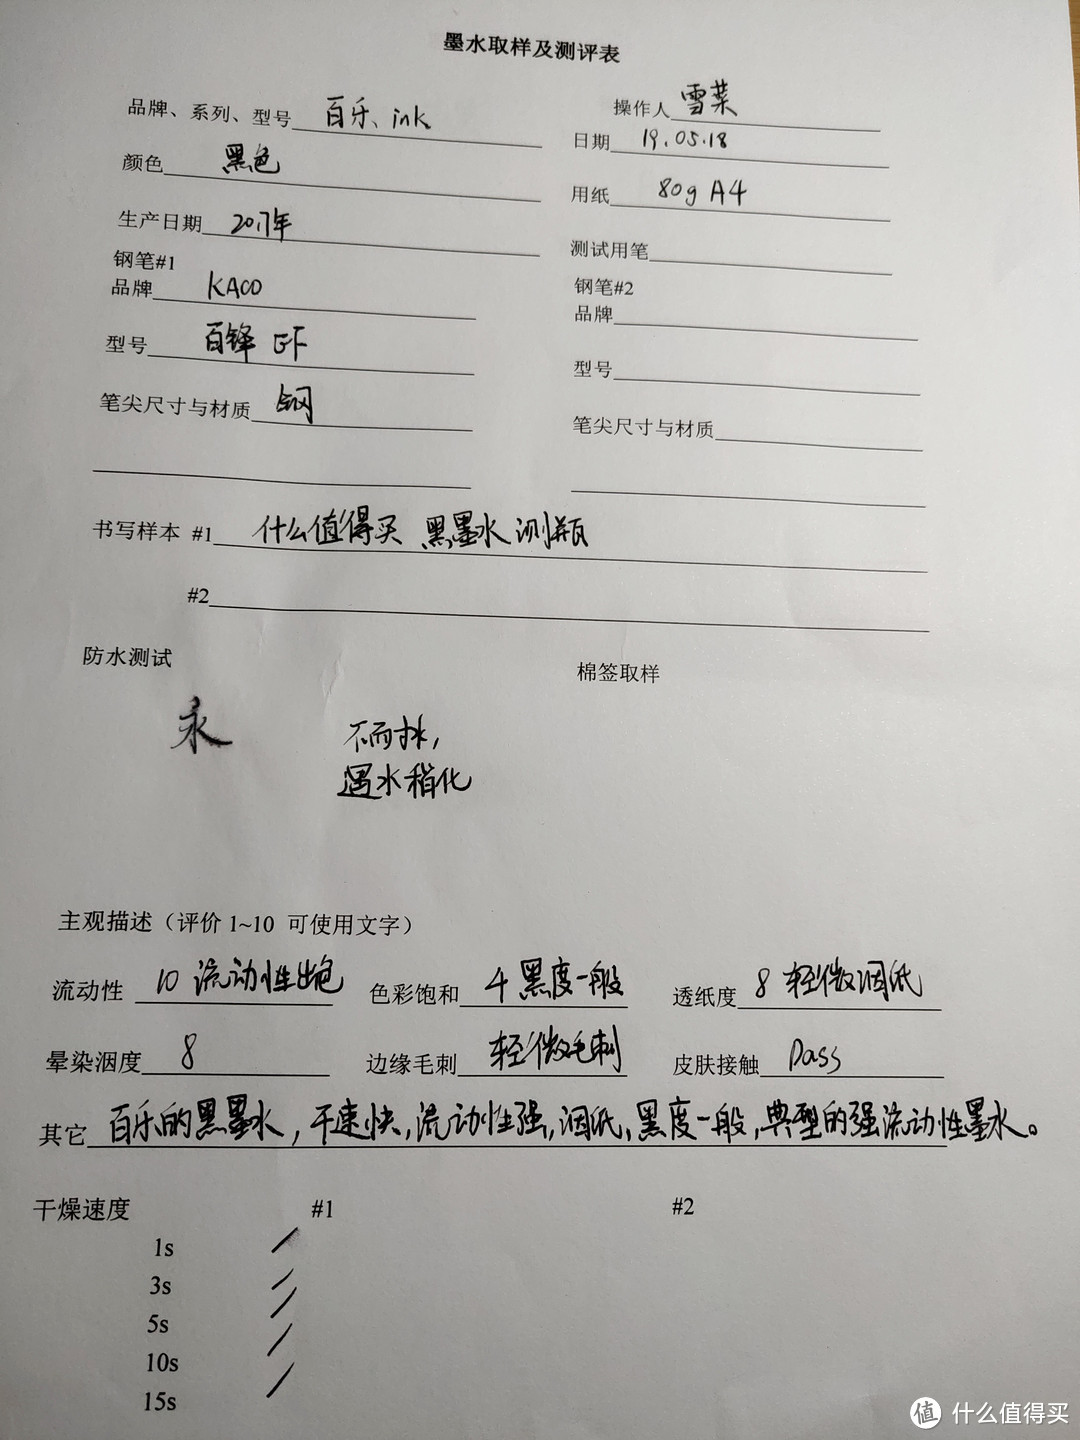 墨水取样及测评表
品牌、系列、型号 百乐、ink 操作人 雪菜
日期 19.05.18
颜色 黑色 用纸 80g A4
生产日期 2017年 测试用笔
钢笔#1 钢笔#2
品牌 KACO 品牌
型号 百锋 EF 型号
笔尖尺寸与材质 钢 笔尖尺寸与材质
书写样本 #1 什么值得买 黑墨水 测瓶
#2
防水测试 棉签取样
永 不耐水,
遇水稍化
主观描述（评价 1~10 可使用文字）
流动性 10 流动性出炮 色彩饱和 4 黑度一般 透纸度 8 轻微洇纸
晕染洇度 8 边缘毛刺 轻微毛刺 皮肤接触 Pass
其它 百乐的黑墨水,干速快,流动性强,洇纸,黑度一般,典型的强流动性墨水。
干燥速度 #1 #2
1s
3s
5s
10s
15s
值 什么值得买